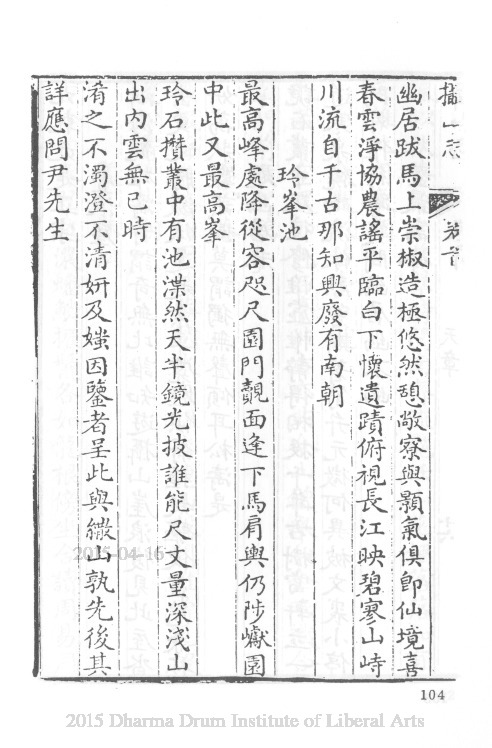 攝山志　卷首
幽居跋馬上崇椒造極悠然憩敞寮與顥氣俱即仙境喜
春雲淨協農謠平臨白下懷遺蹟俯視長江映碧寥山峙
川流自千古那知興廢有南朝
玲峯池
最高峰處降從容咫尺園門覿面逢下馬肩輿仍陟巘園
中此又最高峯
玲石攢叢中有池渫然天半鏡光披誰能尺丈量深淺山
出内雲無已時
淆之不濁澄不清妍及媸因鑒者呈此與繖山孰先後其
詳應問尹先生
104
2015-04-16
2015 Dharma Drum Institute of Liberal Arts